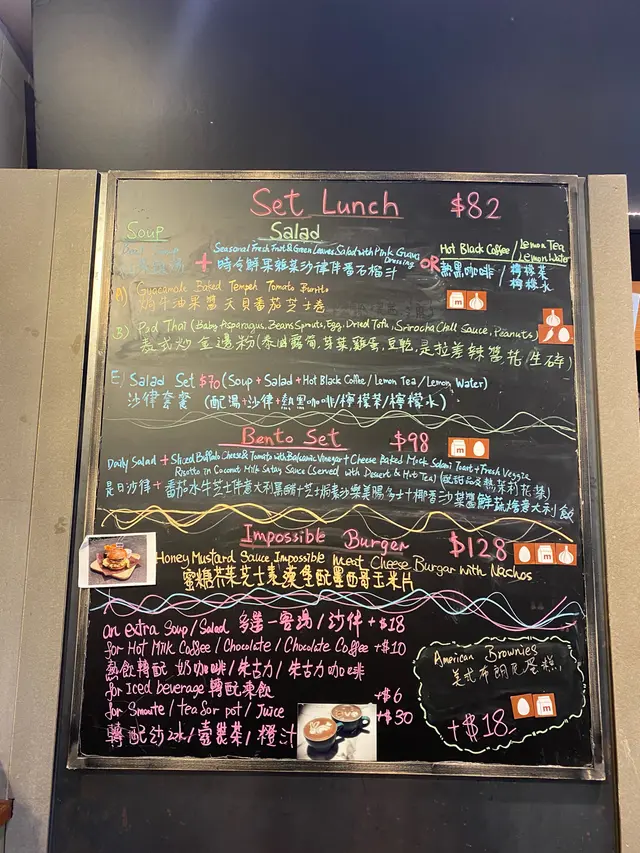 Set Lunch $82
Soup
Salad
Seasonal Fresh Fruit & Green Leaves Salad with Pink Guava Dressing
+ 時令鮮果雜菜沙律伴番石榴汁
OR
Hot Black Coffee / Lemon Tea
Lemon Water
熱黑咖啡 / 檸檬茶
檸檬水
A) Guacamole Baked Tempeh Tomato Burrito
焗牛油果醬天貝番茄芝士卷
B) Pad Thai (Baby Asparagus, Beans Sprouts, Egg, Dried Tofu, Sriracha Chili Sauce, Peanuts)
泰式炒金邊粉(泰國露筍,芽菜,雞蛋,豆乾,是拉差辣醬,花生碎)
E) Salad Set $70 (Soup + Salad + Hot Black Coffee / Lemon Tea / Lemon Water)
沙律套餐 (配湯+沙律+熱黑咖啡/檸檬茶/檸檬水)
Bento Set $98
Daily Salad + Sliced Buffalo Cheese & Tomato with Balsamic Vinegar + Cheese Baked Mock Salami Toast + Fresh Veggie
Risotto in Coconut Milk Satay Sauce (Served with Dessert & Hot Tea) (配甜品及熱茉莉花茶)
是日沙律 + 番茄水牛芝士伴意大利黑醋 + 芝士焗素沙樂美腸多士 + 椰香沙嗲醬鮮蔬燴意大利飯
Impossible Burger $128
Honey Mustard Sauce Impossible Meat Cheese Burger with Nachos
蜜糖芥菜芝士素漢堡配墨西哥玉米片
an extra Soup / Salad 多選一客湯 / 沙律 +$18
for Hot Milk Coffee / Chocolate / Chocolate Coffee +$10
熱飲轉配 奶咖啡 / 朱古力 / 朱古力咖啡
for Iced beverage 轉配凍飲 +$6
for Smoite / tea for pot / Juice +$30
轉配沙冰 / 壺裝茶 / 橙汁
American Brownies
美式布朗尼蛋糕
+$18